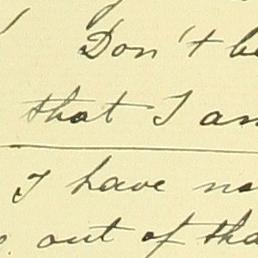 Don't b
that I am
I have no
out of tha